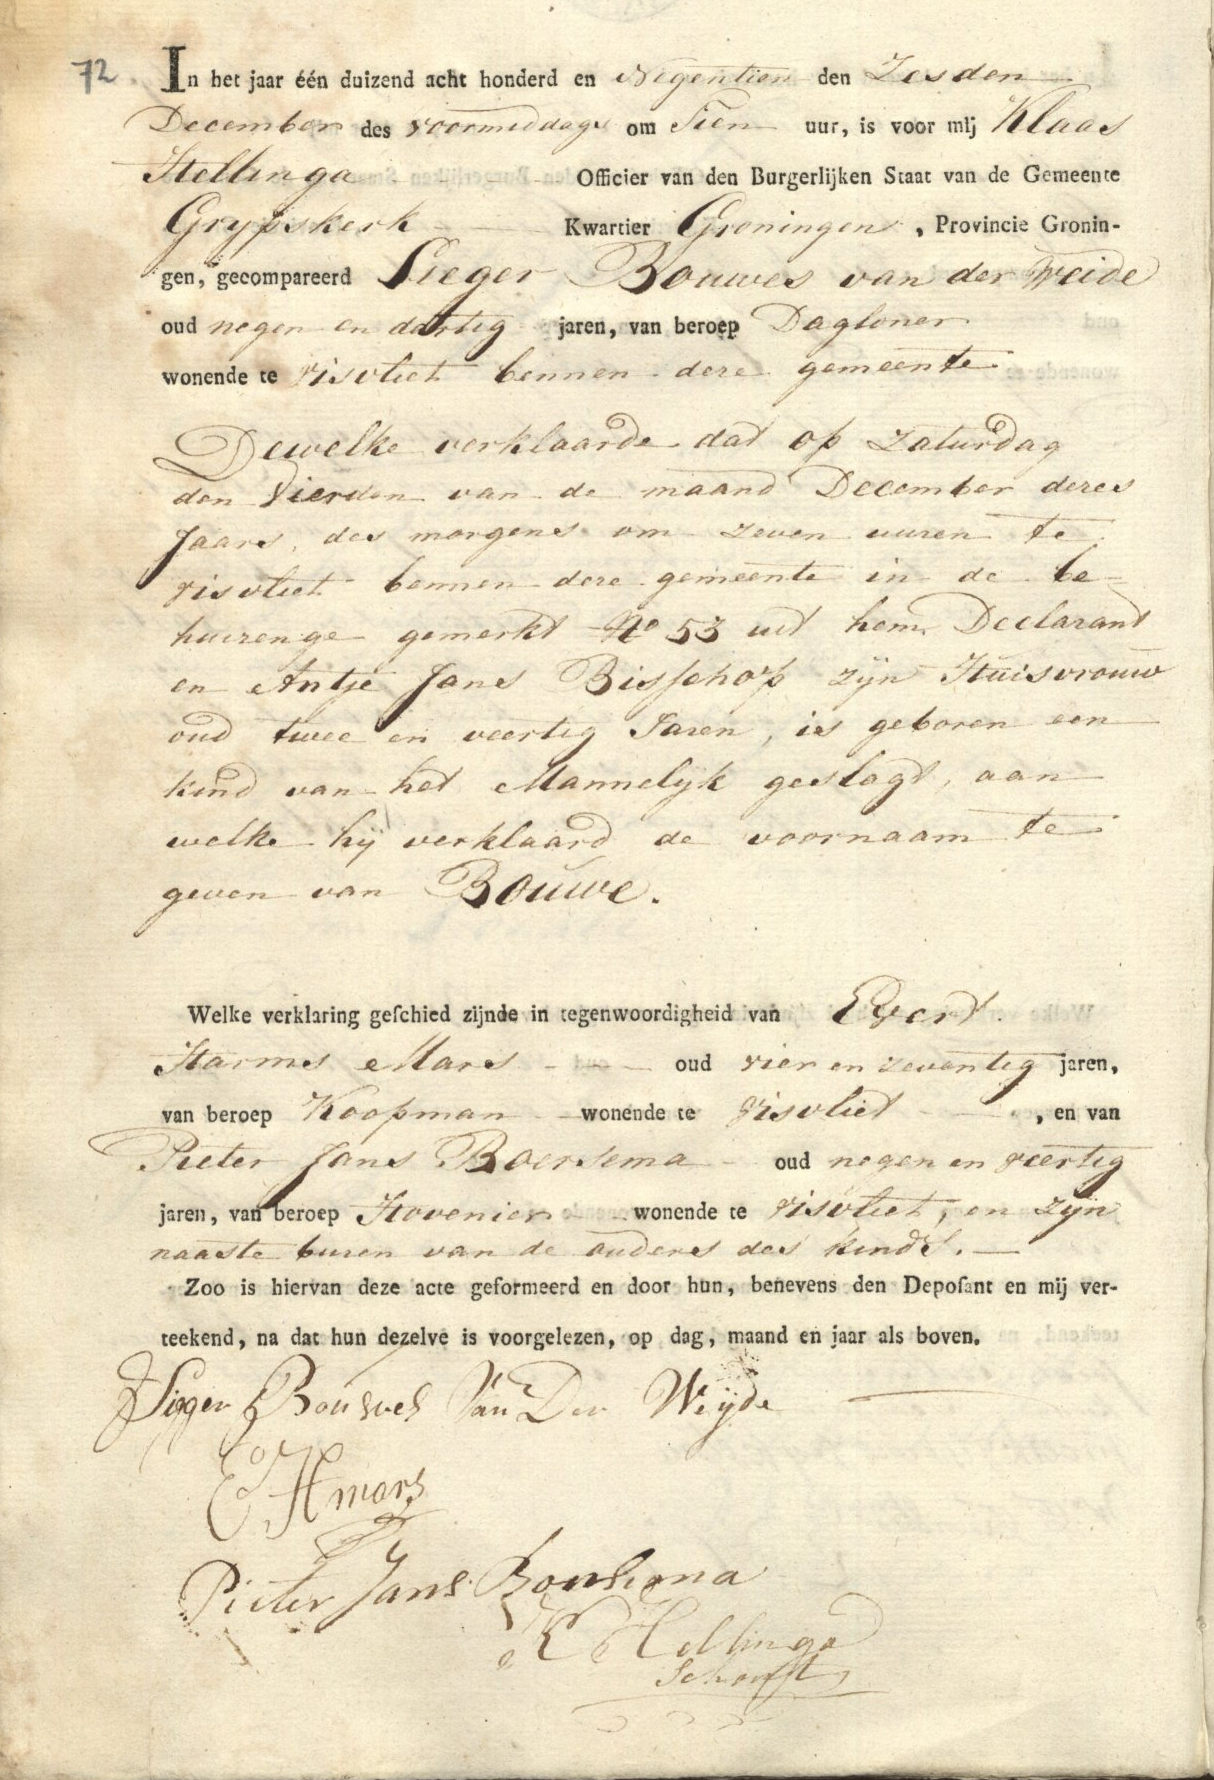 72. In het jaar één duizend acht honderd en Negentien den Zesden
December des voormiddags om Tien uur, is voor mij Klaas
Hellinga Officier van den Burgerlijken Staat van de Gemeente
Grypskerk Kwartier Groningen, Provincie Gronin-
gen, gecompareerd Sieger Bouwes van der Weide
oud negen en dartig jaren, van beroep Dagloner
wonende te Visvliet bennen dere gemeente
Dewelke verklaarde dat op Zaturdag
den Vierden van de maand December deres
Jaars, des morgens om zeven uuren te
Visvliet bennen dere gemeente in de be-
huizenge gemerkt No 53 uit hem Declarant
en Antje Jans Bisschop zijn Huisvrouw
oud twee en veertig Jaren, is geboren een
kind van het Mannelyk geslagt, aan
welke hij verklaard de voornaam te
geven van Bouwe.
Welke verklaring geſchied zijnde in tegenwoordigheid van Evert
Harms Mars oud vier en zeventig jaren,
van beroep Koopman wonende te Visvliet, en van
Pieter Jans Boersema oud negen en veertig
jaren, van beroep Hovenier wonende te Visvliet, en zijn
naaste buren van de ouders des kinds.
Zoo is hiervan deze acte geformeerd en door hun, benevens den Depoſant en mij ver-
teekend, na dat hun dezelve is voorgelezen, op dag, maand en jaar als boven.
Sieger Bouwes Van Der Weijde
E H mars
Pieter Jans Boersema
K Hellinga
Schout